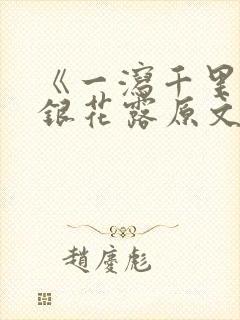 《一瀉千里
銀花露原文
趙慶彪